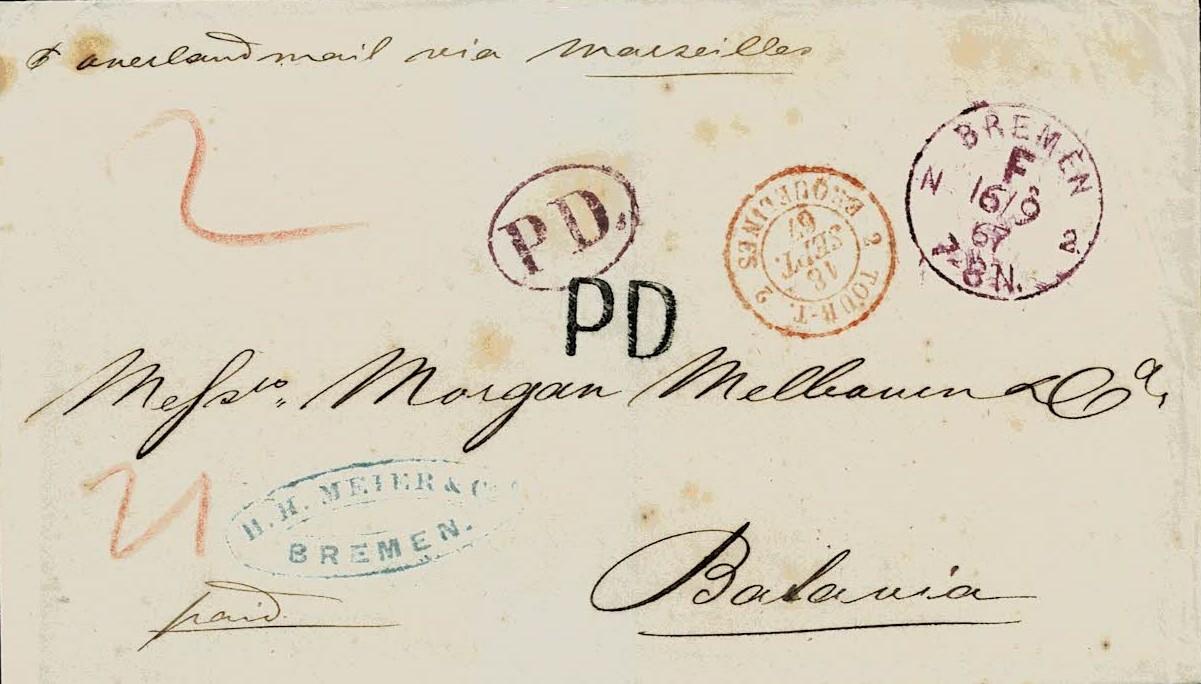 ℘ overland mail via Marseilles
2
P.D.
PD
2 TOUR-T. 2 ERQUELINES
16
SEPT.
67
BREMEN
F
16/9
67
N 2
7-8 N.
Messrs. Morgan Melbourn & Co,
21
H. H. MEIER & Co
BREMEN.
paid
Batavia